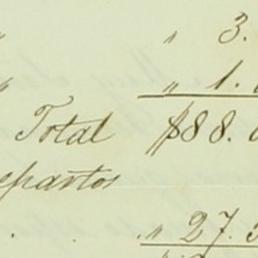 " " 3.
" " 1.
Total $88.
epartos
" 27.3